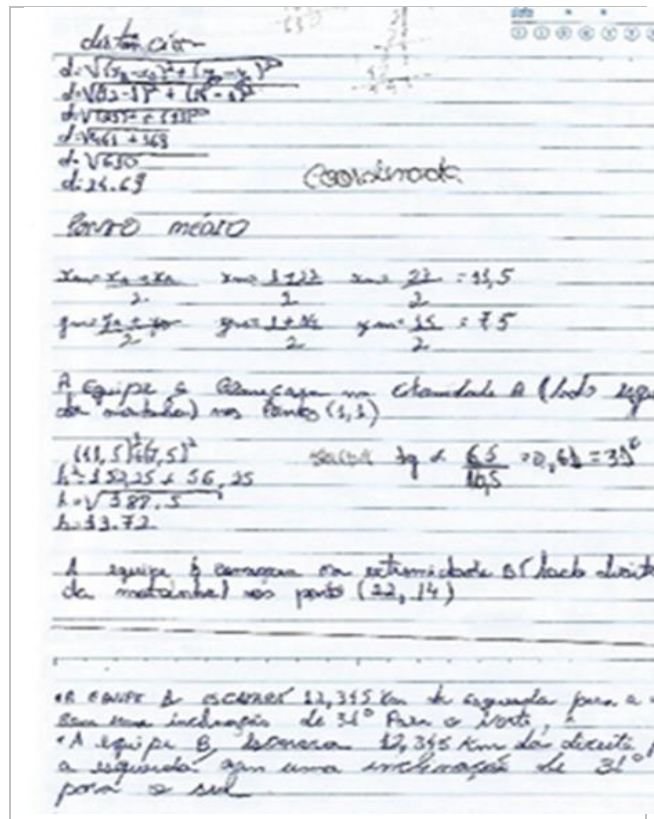 distância
d=√(x₂-x₁)²+(y₂-y₁)²
d=√(22-1)²+(14-1)²
d=√(21)²+(13)²
d=√441+169
d=√610
d=24.69
Coordenada
PONTO MÉDIO
xm= 1+22/2 xm= 23/2 =11,5
ym= 1+14/2 ym= 15/2 =7,5
A equipe a começara na extremidade A (lado
da) nos Ponto (1,1)
(11,5)²+(7,5)²
h²=132,25+56,25
h=√187.5
h=13.72
tg α 6,5/10,5 =0,61=31°
A equipe b começara na extremidade B (lado
da montanha) nos ponto (22, 14)
A EQUIPE A ESCAVARÁ 12,345 Km da esquerda para a
com uma inclinação de 31° Para o norte,
A equipe B, escavara 12,345 Km da direita
a esquerda com uma inclinação de 31°
para o sul